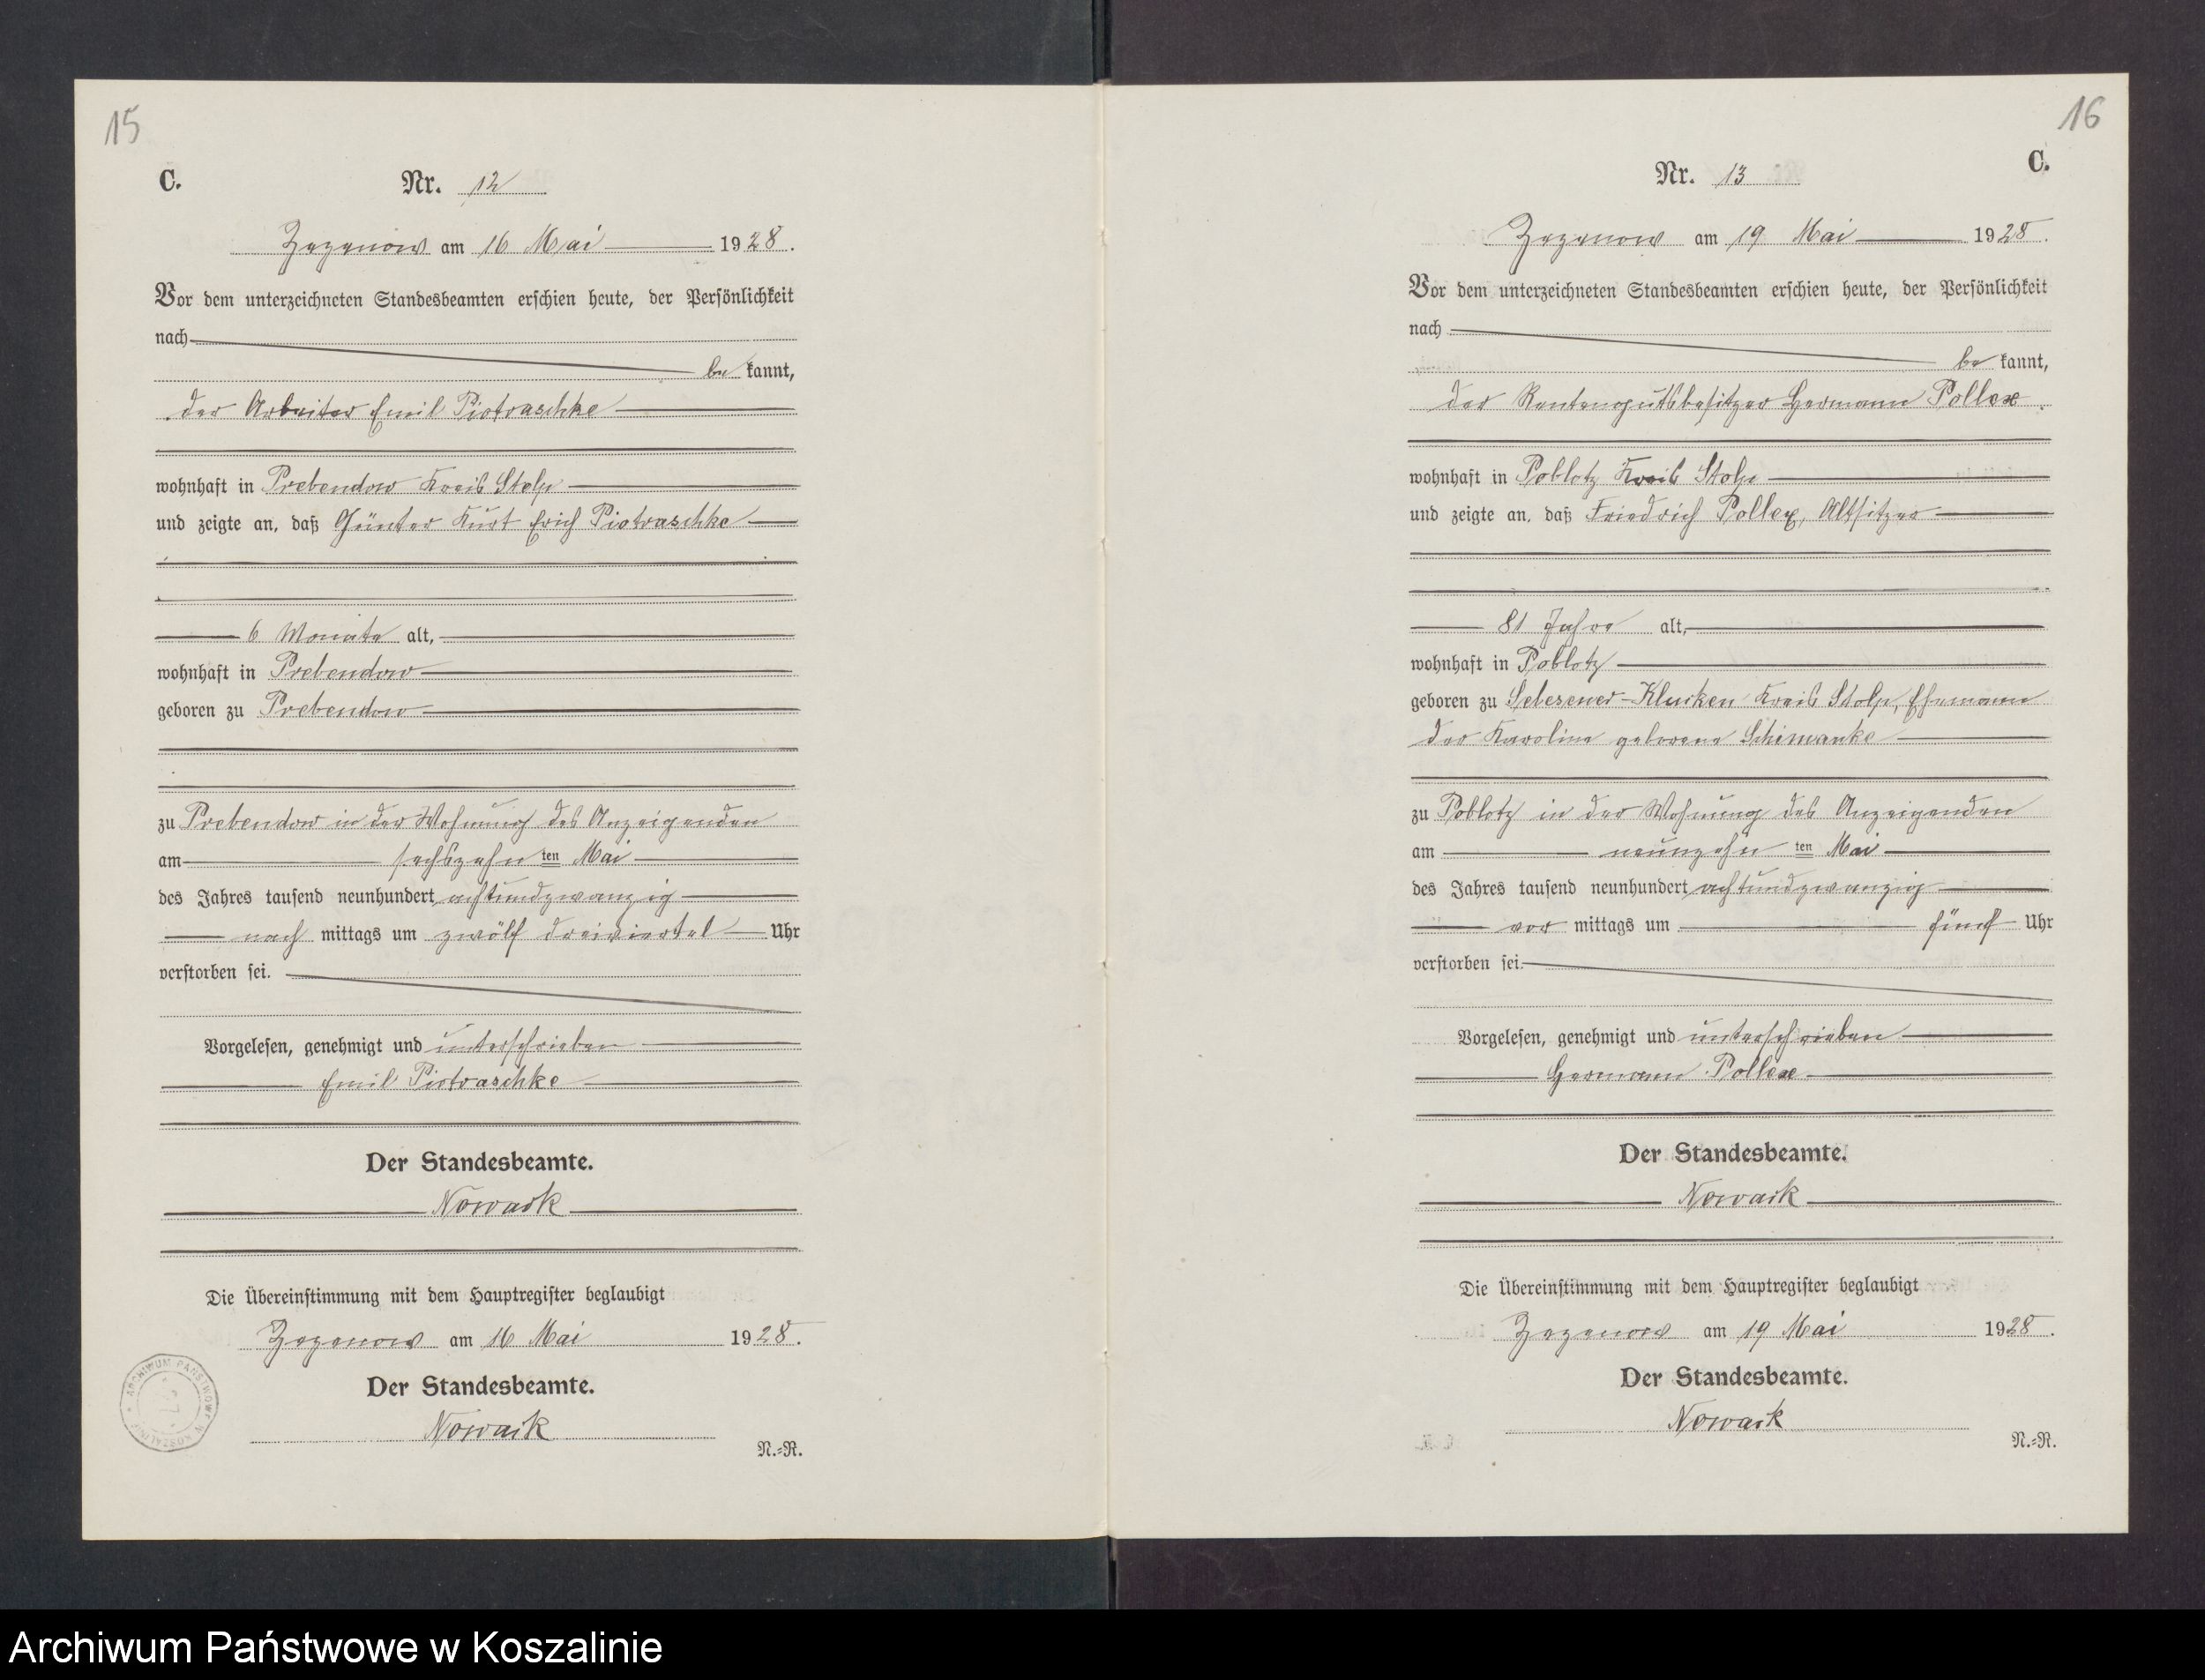 15
C.
Nr. 12
Zezenow am 16 Mai 1928.
Vor dem unterzeichneten Standesbeamten erschien heute, der Persönlichkeit
nach
be kannt,
der Arbeiter Emil Piotraschke
wohnhaft in Prebendow Kreis Stolp
und zeigte an, daß Günter Kurt Erich Piotraschke
6 Monate alt,
wohnhaft in Prebendow
geboren zu Prebendow
zu Prebendow in der Wohnung des Anzeigenden
am sechszehn ten Mai
des Jahres tausend neunhundert achtundzwanzig
nach mittags um zwölf dreiviertel Uhr
verstorben sei.
Vorgelesen, genehmigt und unterschrieben
Emil Piotraschke
Der Standesbeamte.
Nowack
Die Übereinstimmung mit dem Hauptregister beglaubigt
Zezenow am 16 Mai 1928.
Der Standesbeamte.
Nowack
N.=R.
ARCHIWUM PAŃSTWOWE W KOSZALINIE
16
C.
Nr. 13
Zezenow am 19 Mai 1928.
Vor dem unterzeichneten Standesbeamten erschien heute, der Persönlichkeit
nach
be kannt,
der Rentengutsbesitzer Hermann Pollex
wohnhaft in Poblotz Kreis Stolp
und zeigte an, daß Friedrich Pollex, Altsitzer
81 Jahre alt,
wohnhaft in Poblotz
geboren zu Selesener-Klucken Kreis Stolp, Ehemann
der Karoline geborene Schimanke
zu Poblotz in der Wohnung des Anzeigenden
am neunzehn ten Mai
des Jahres tausend neunhundert achtundzwanzig
vor mittags um fünf Uhr
verstorben sei.
Vorgelesen, genehmigt und unterschrieben
Hermann Pollex
Der Standesbeamte.
Nowack
Die Übereinstimmung mit dem Hauptregister beglaubigt
Zezenow am 19 Mai 1928.
Der Standesbeamte.
Nowack
N.=R.
Archiwum Państwowe w Koszalinie